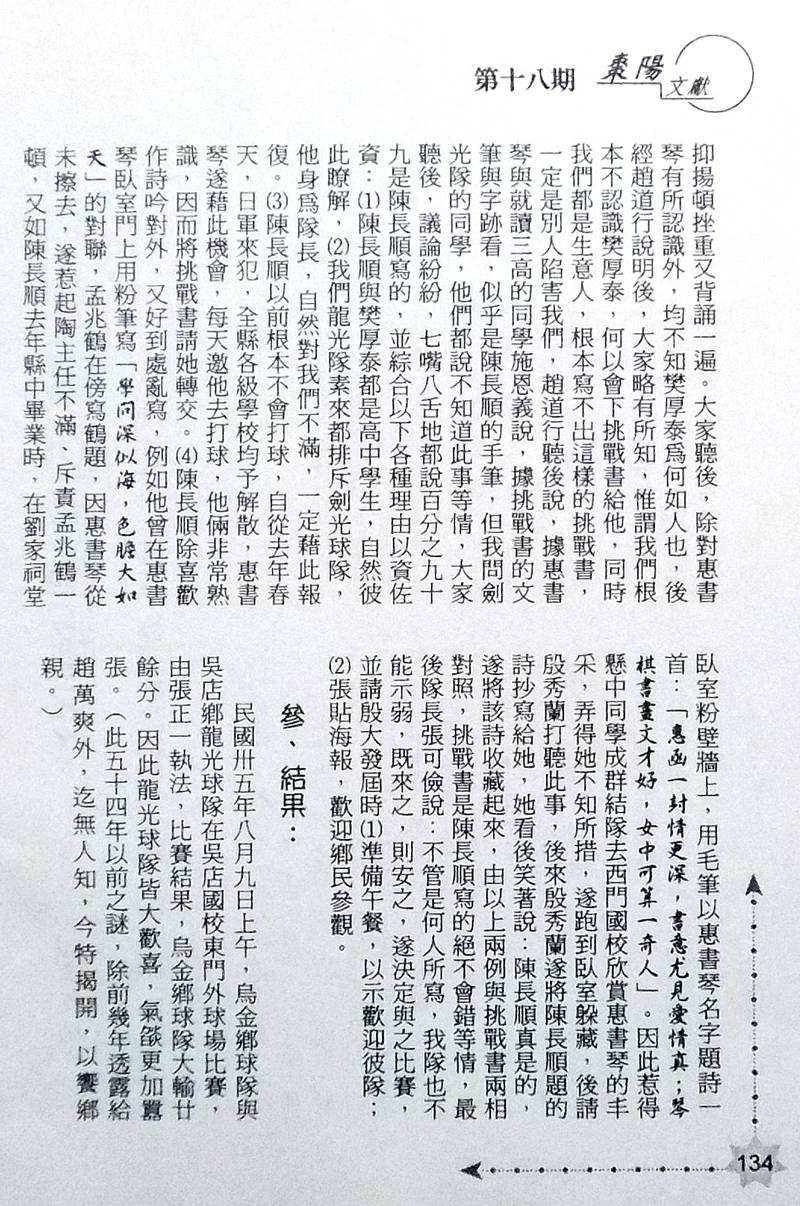 第十八期
棗陽
文獻
抑揚頓挫重又背誦一遍。大家聽後，除對惠書
琴有所認識外，均不知樊厚泰爲何如人也，後
經趙道行說明後，大家略有所知，惟謂我們根
本不認識樊厚泰，何以會下挑戰書給他，同時
我們都是生意人，根本寫不出這樣的挑戰書，
一定是別人陷害我們，趙道行聽後說，據惠書
琴與就讀三高的同學施恩義說，據挑戰書的文
筆與字跡看，似乎是陳長順的手筆，但我問劍
光隊的同學，他們都說不知道此事等情，大家
聽後，議論紛紛，七嘴八舌地都說百分之九十
九是陳長順寫的，並綜合以下各種理由以資佐
資：⑴陳長順與樊厚泰都是高中學生，自然彼
此瞭解，⑵我們龍光隊素來都排斥劍光球隊，
他身爲隊長，自然對我們不滿，一定藉此報
復。⑶陳長順以前根本不會打球，自從去年春
天，日軍來犯，全縣各級學校均予解散，惠書
琴遂藉此機會，每天邀他去打球，他倆非常熟
識，因而將挑戰書請她轉交。⑷陳長順除喜歡
作詩吟對外，又好到處亂寫，例如他曾在惠書
琴臥室門上用粉筆寫「學問深似海，色膽大如
天」的對聯，孟兆鶴在傍寫鶴題，因惠書琴從
未擦去，遂惹起陶主任不滿、斥責孟兆鶴一
頓，又如陳長順去年縣中畢業時，在劉家祠堂
臥室粉壁牆上，用毛筆以惠書琴名字題詩一
首：「惠函一封情更深，書意尤見愛情真；琴
棋書畫文才好，女中可算一奇人」。因此惹得
縣中同學成群結隊去西門國校欣賞惠書琴的丰
采，弄得她不知所措，遂跑到臥室躲藏，後請
殷秀蘭打聽此事，後來殷秀蘭遂將陳長順題的
詩抄寫給她，她看後笑著說：陳長順真是的，
遂將該詩收藏起來，由以上兩例與挑戰書兩相
對照，挑戰書是陳長順寫的絕不會錯等情，最
後隊長張可儉說：不管是何人所寫，我隊也不
能示弱，既來之，則安之，遂決定與之比賽，
並請殷大發屆時⑴準備午餐，以示歡迎彼隊；
⑵張貼海報，歡迎鄉民參觀。
參、結果：
民國卅五年八月九日上午，烏金鄉球隊與
吳店鄉龍光球隊在吳店國校東門外球場比賽，
由張正一執法，比賽結果，烏金鄉球隊大輸廿
餘分。因此龍光球隊皆大歡喜，氣燄更加囂
張。（此五十四年以前之謎，除前幾年透露給
趙萬爽外，迄無人知，今特揭開，以饗鄉
親。）
134